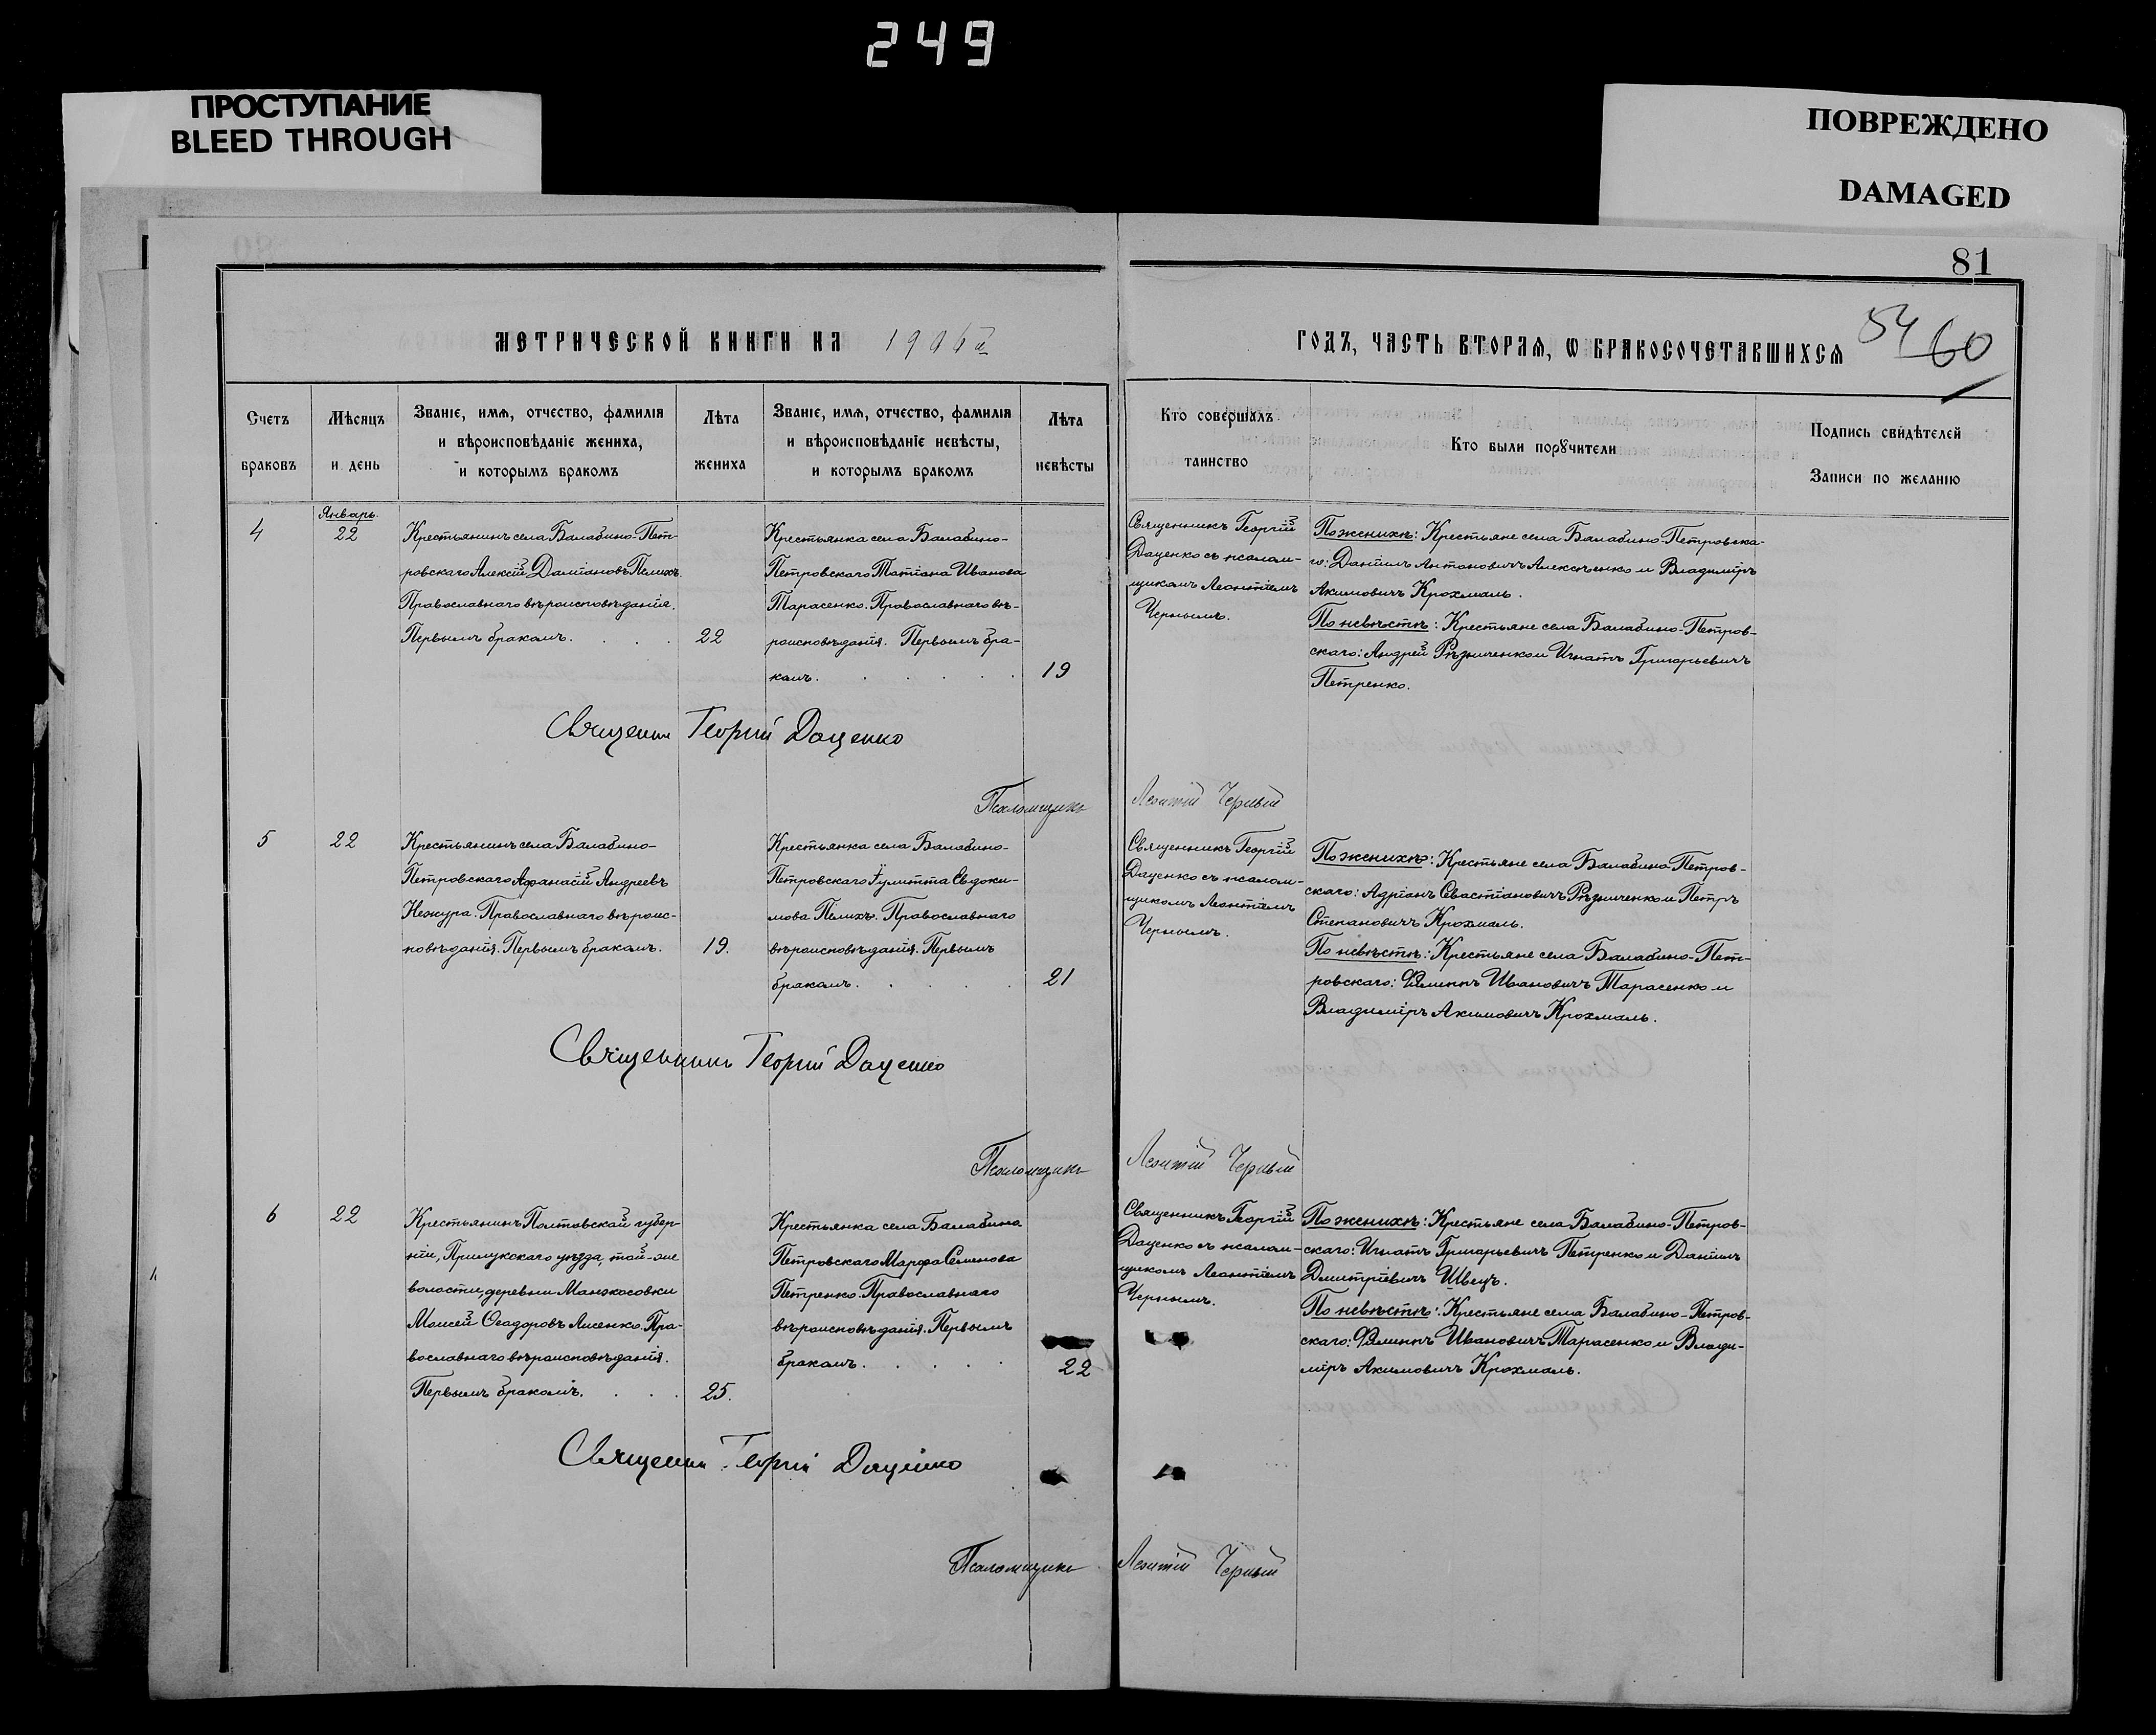 249
ПРОСТУПАНИЕ
BLEED THROUGH
ПОВРЕЖДЕНО
DAMAGED
81
54 60
МЕТРИЧЕСКОЙ КНИГИ НА 1906й
ГОДЪ, ЧАСТЬ ВТОРАЯ, Ѡ БРАКОСОЧЕТАВШИХСЯ
Счетъ
браковъ
Мѣсяцъ
и день
Званіе, имя, отчество, фамилія
и вѣроисповѣданіе жениха,
и которымъ бракомъ
Лѣта
жениха
Званіе, имя, отчество, фамилія
и вѣроисповѣданіе невѣсты,
и которымъ бракомъ
Лѣта
невѣсты
Кто совершалъ
таинство
Кто были порꙋчители
Подпись свидѣтелей
Записи по желанію
4
Январь.
22
Крестьянинъ села Балабино-Пет-
ровскаго Алексій Даміановъ Пелихъ.
Православнаго вѣроисповѣданія.
Первымъ бракомъ. . . .
22
Крестьянка села Балабино-
Петровскаго Татіана Иванова
Тарасенко. Православнаго вѣ-
роисповѣданія. Первымъ бра-
комъ. . . . . .
19
Священникъ Георгій
Даценко съ псалом-
щикомъ Леонтіемъ
Чернымъ.
По женихѣ: Крестьяне села Балабино-Петровска-
го: Даніилъ Антоновичъ Алексѣенко и Владиміръ
Акимовичъ Крохмаль.
По невѣстѣ: Крестьяне села Балабино-Петров-
скаго: Андрей Рѣзниченко и Игнатъ Григорьевичъ
Петренко.
Священник Георгій Даценко
Псаломщикъ Леонтій Черный
5
22
Крестьянинъ села Балабино-
Петровскаго Афанасій Андреевъ
Нежура. Православнаго вѣроис-
повѣданія. Первымъ бракомъ.
19.
Крестьянка села Балабино-
Петровскаго Іулитта Евдоки-
мова Пелихъ. Православнаго
вѣроисповѣданія. Первымъ
бракомъ. . . . .
21
Священникъ Георгій
Даценко съ псалом-
щикомъ Леонтіемъ
Чернымъ.
По женихѣ: Крестьяне села Балабино-Петров-
скаго: Адріанъ Севастіановичъ Рѣзниченко и Петръ
Степановичъ Крохмаль.
По невѣстѣ: Крестьяне села Балабино-Пет-
ровскаго: Филиппъ Ивановичъ Тарасенко и
Владиміръ Акимовичъ Крохмаль.
Священникъ Георгій Даценко
Псаломщикъ Леонтій Черный
6
22
Крестьянинъ Полтовской губер-
ніи, Прилукскаго уѣзда, той-же
волости, деревни Манжосовки
Моисей Ѳеодоровъ Лисенко. Пра-
вославнаго вѣроисповѣданія.
Первымъ бракомъ. . . .
25.
Крестьянка села Балабино
Петровскаго Марфа Семенова
Петренко. Православнаго
вѣроисповѣданія. Первымъ
бракомъ. . . . .
22
Священникъ Георгій
Даценко съ псалом-
щикомъ Леонтіемъ
Чернымъ.
По женихѣ: Крестьяне села Балабино-Петров-
скаго: Игнатъ Григорьевичъ Петренко и Даніилъ
Дмитріевичъ Швецъ.
По невѣстѣ: Крестьяне села Балабино-Петров-
скаго: Филиппъ Ивановичъ Тарасенко и Влади-
міръ Акимовичъ Крохмаль.
Священник Георгій Даценко
Псаломщикъ Леонтій Черный